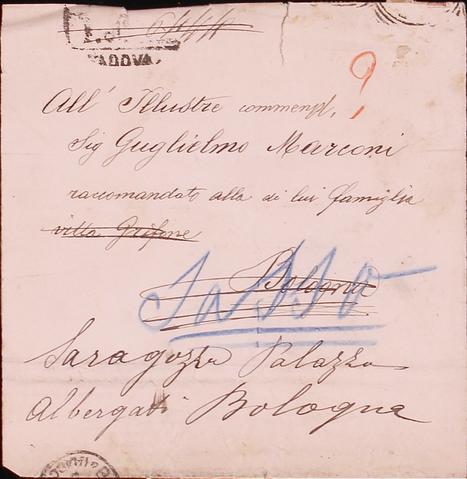 PADOVA
9
All' Illustre commend.
Sig Guglielmo Marconi
raccomandato alla di lui famiglia
villa Grifone
Bologna
Sasso
Saragozza Palazzo
Albergati Bologna